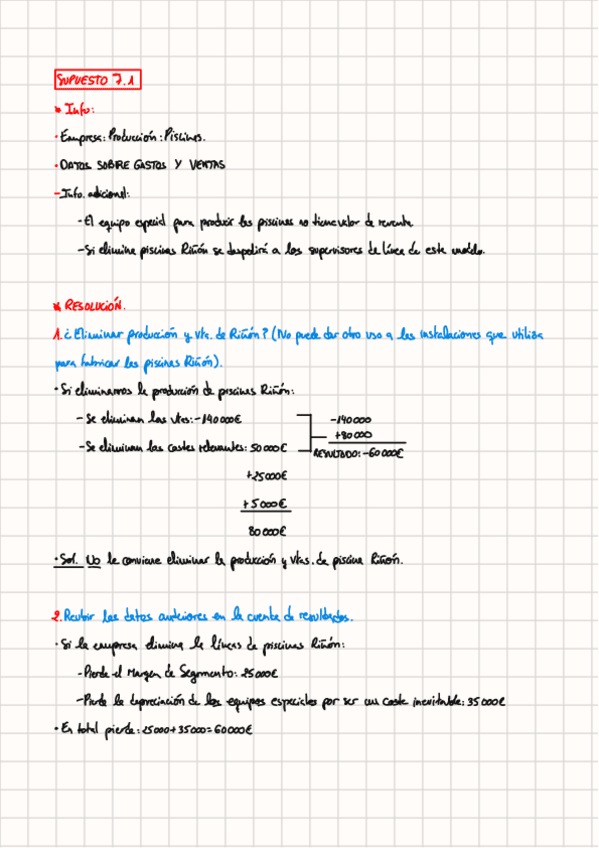 SUPUESTO 7.1
* Info:
· Empresa: Producción: Piscinas.
· DATOS SOBRE GASTOS Y VENTAS
- Info. adicional:
- El equipo especial para producir las piscinas no tiene valor de reventa
- Si elimina piscinas Riñón se despedirá a los supervisores de línea de este modelo.
* RESOLUCIÓN.
1. ¿Eliminar producción y vta. de Riñón? (No puede dar otro uso a las instalaciones que utiliza
para fabricar las piscinas Riñón).
· Si eliminamos la producción de piscinas Riñón:
- Se eliminan las vtas: -140000€
-140000
+80000
- Se eliminan los costes relevantes: 50000€
RESULTADO: -60000€
+25000€
+5000€
80000€
· Sol. No le conviene eliminar la producción y vtas. de piscina Riñón.
2. los datos anteriores en la cuenta de resultados.
· Si la empresa elimina la líneas de piscinas Riñón:
- Pierde el Margen de Segmento: 25000€
- Pierde la depreciación de los equipos especiales por ser un coste inevitable: 35000€
· En total pierde: 25000+35000=60000€